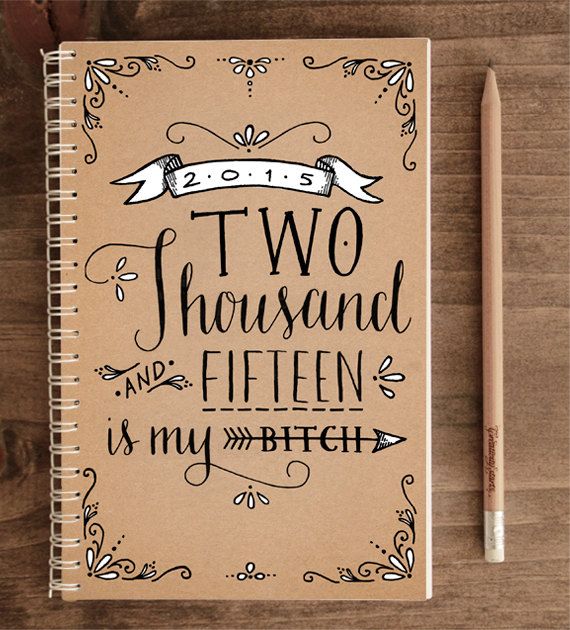 2·0·1·5
TWO
Thousand
AND FIFTEEN
is my BITCH